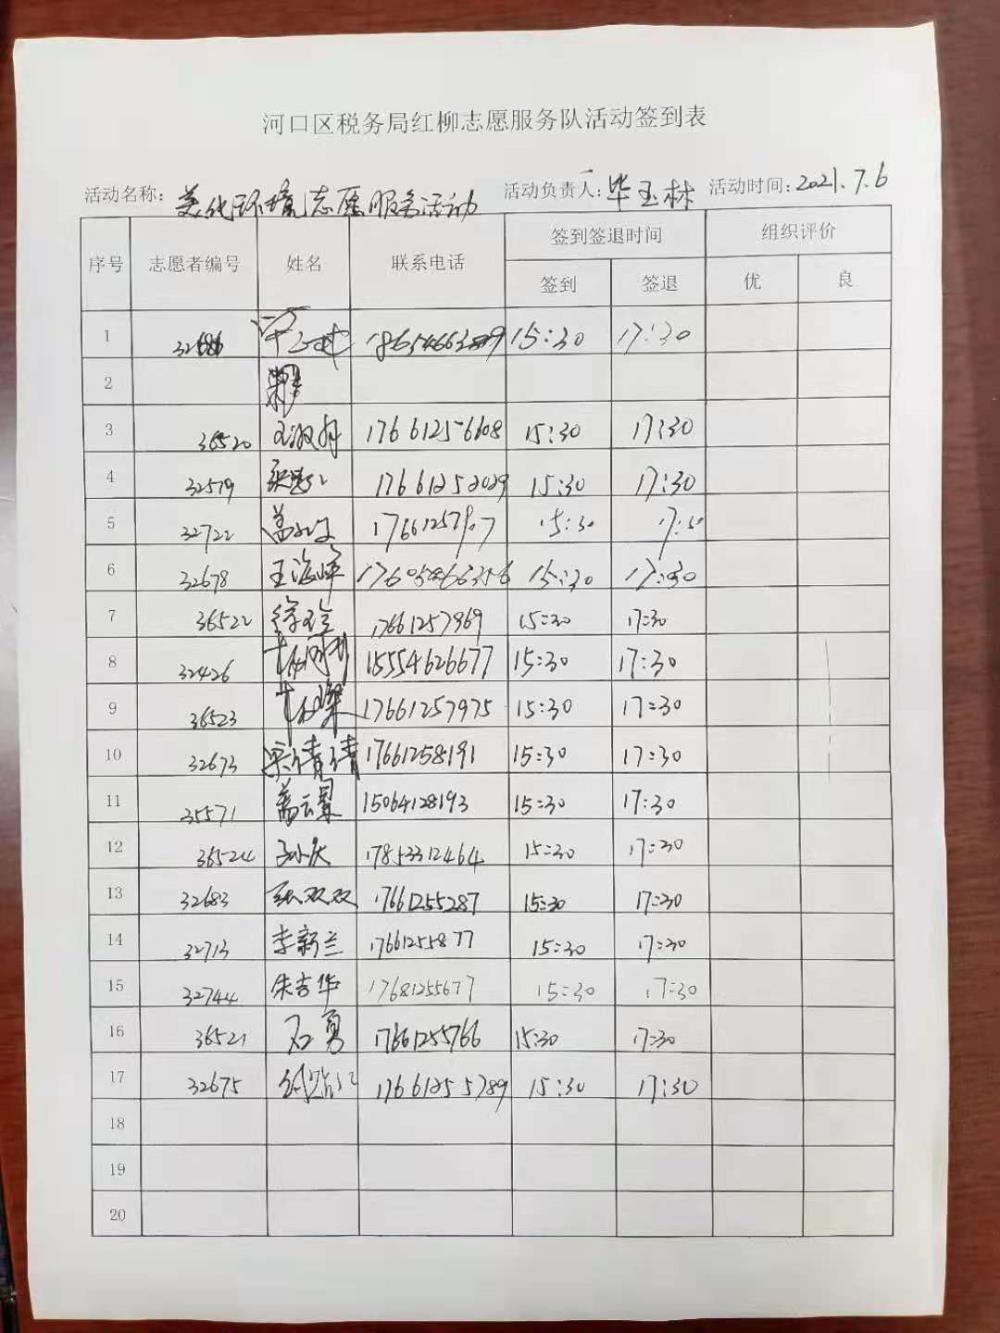 河口区税务局红柳志愿服务队活动签到表
活动名称: 美化环境志愿服务活动 活动负责人: 毕玉林 活动时间: 2021.7.6
序号 志愿者编号 姓名 联系电话 签到签退时间 组织评价
签到 签退 优 良
1 32686 15:30 17:30
2
3 36520 15:30 17:30
4 32519 17661252029 15:30 17:30
5 32722 15:30 17:30
6 32678 王海峰 15:30 17:30
7 36522 徐玲 17661257969 15:30 17:30
8 32426 15554626677 15:30 17:30
9 36523 17661257975 15:30 17:30
10 32673 宋倩倩 17661258191 15:30 17:30
11 35571 15064128193 15:30 17:30
12 36524 17853312464 15:30 17:30
13 32683 张双双 17661255287 15:30 17:30
14 32713 李新兰 17661255877 15:30 17:30
15 32744 朱吉华 17681255677 15:30 17:30
16 36521 石勇 17661255766 15:30 17:30
17 32675 17661255789 15:30 17:30
18
19
20